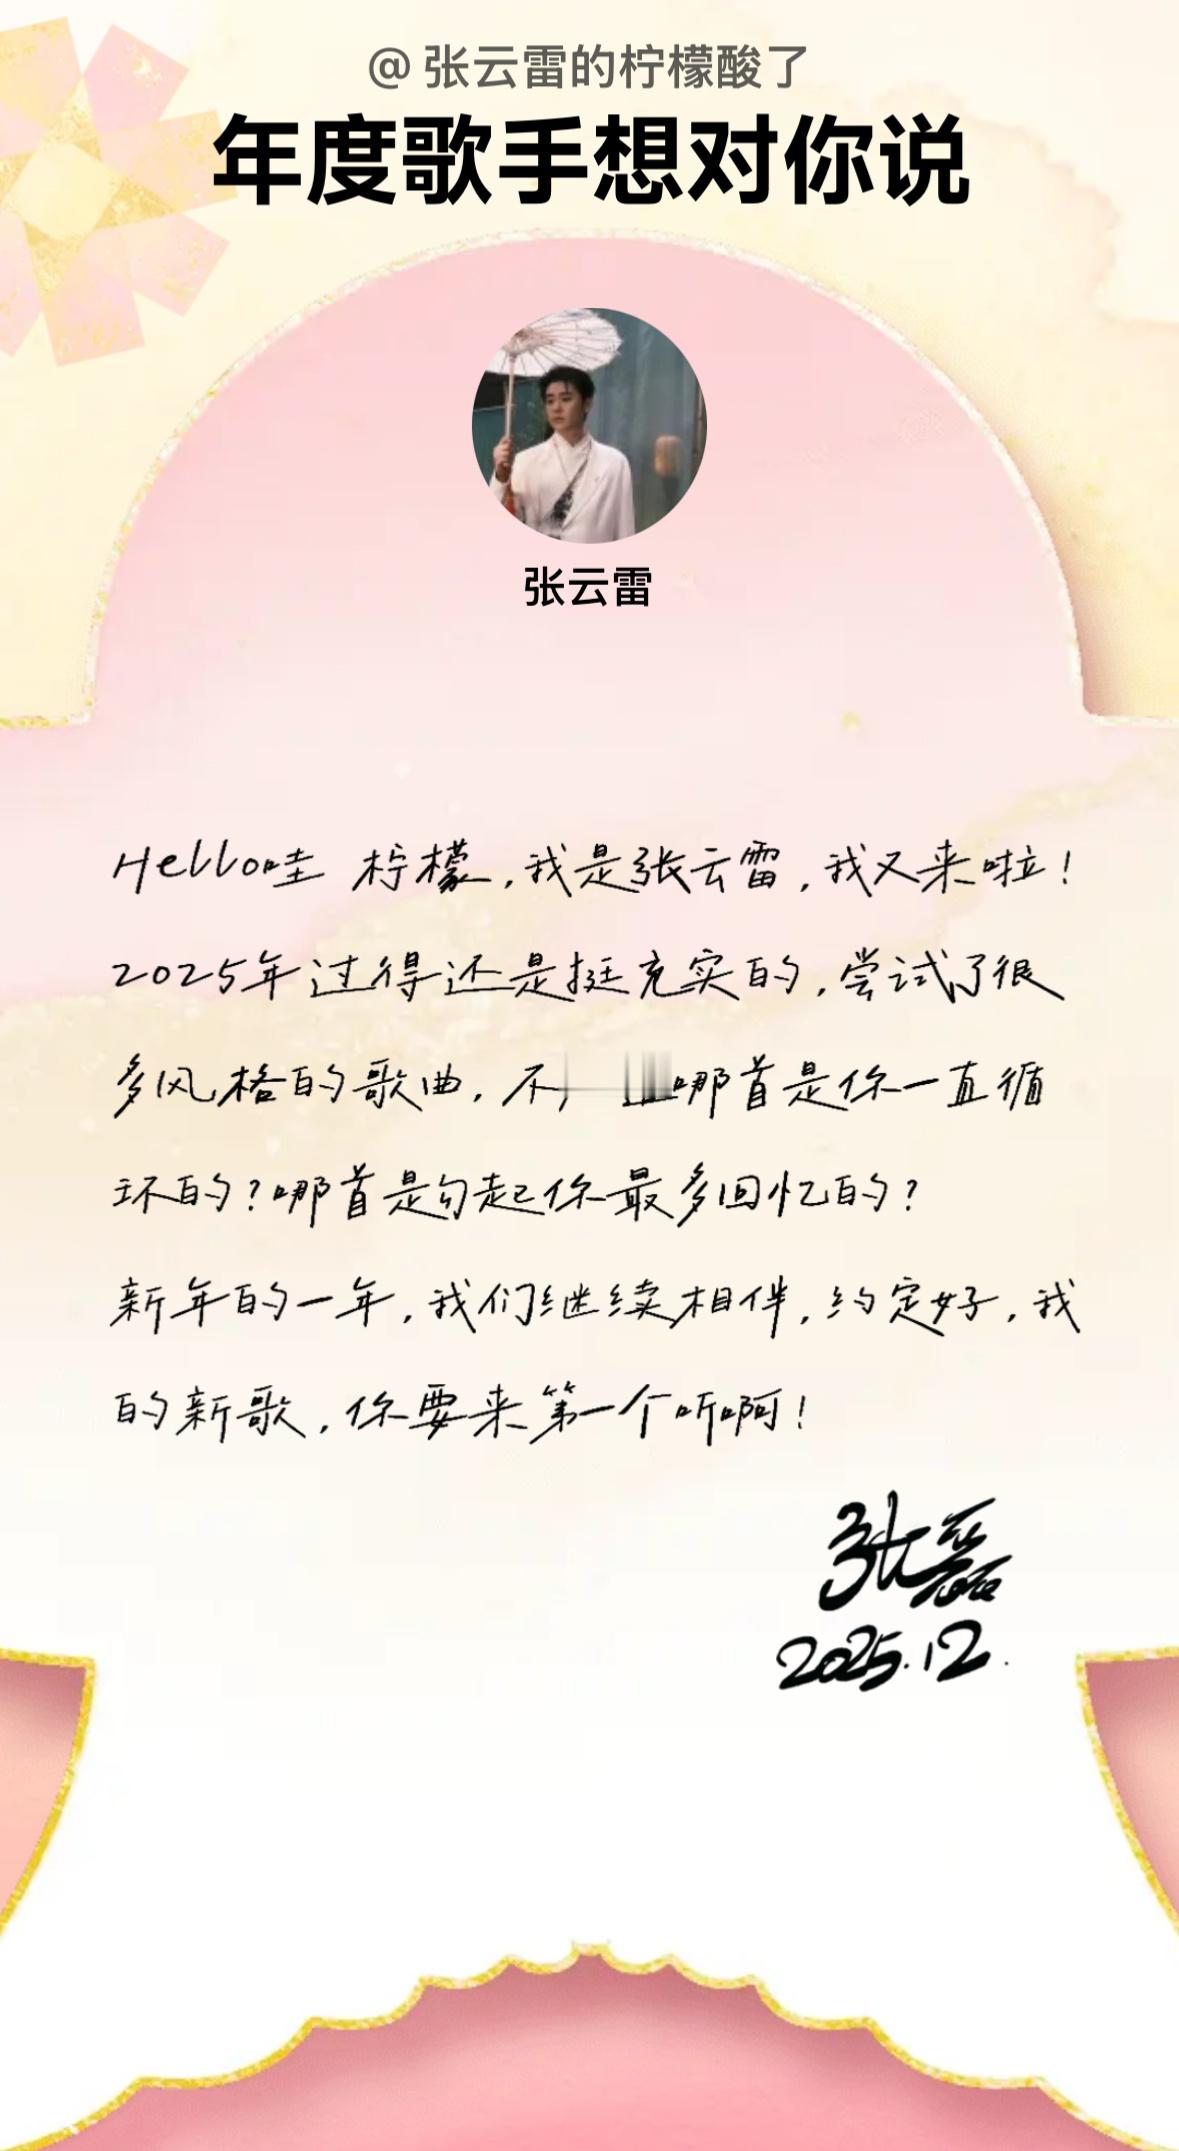 @张云雷的柠檬酸了
年度歌手想对你说
张云雷
Hello哇 柠檬,我是张云雷,我又来啦!
2025年过得还是挺充实的,尝试了很
多风格的歌曲,不 哪首是你一直循
环的?哪首是勾起你最多回忆的?
新年的一年,我们继续相伴,约定好,我
的新歌,你要来第一个听啊!
张磊
2025.12.